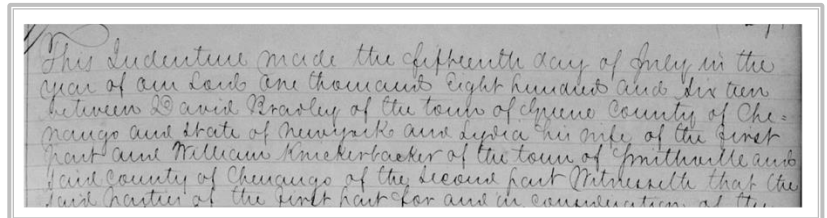 This Indenture made the fifteenth day of July in the
year of our Lord One thousand Eight hundred and Six teen
between David Bradley of the town of Greene County of Che=
nango and State of Newyork and Lydia his wife of the first
part and William Knickerbacker of the town of Smithville and
said County of Chenango of the Second part Witnesseth that the
said Parties of the first part for and in consideration of the